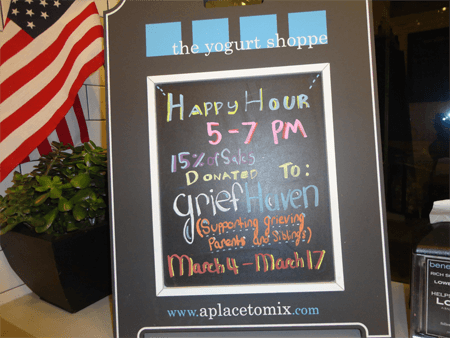 the yogurt shoppe
Happy Hour
5-7 PM
15% of Sales
Donated To:
griefHaven
(Supporting grieving
Parents and Siblings)
March 4 - March 17
www.aplacetomix.com
RICH S
LOWE
HELPS
LO